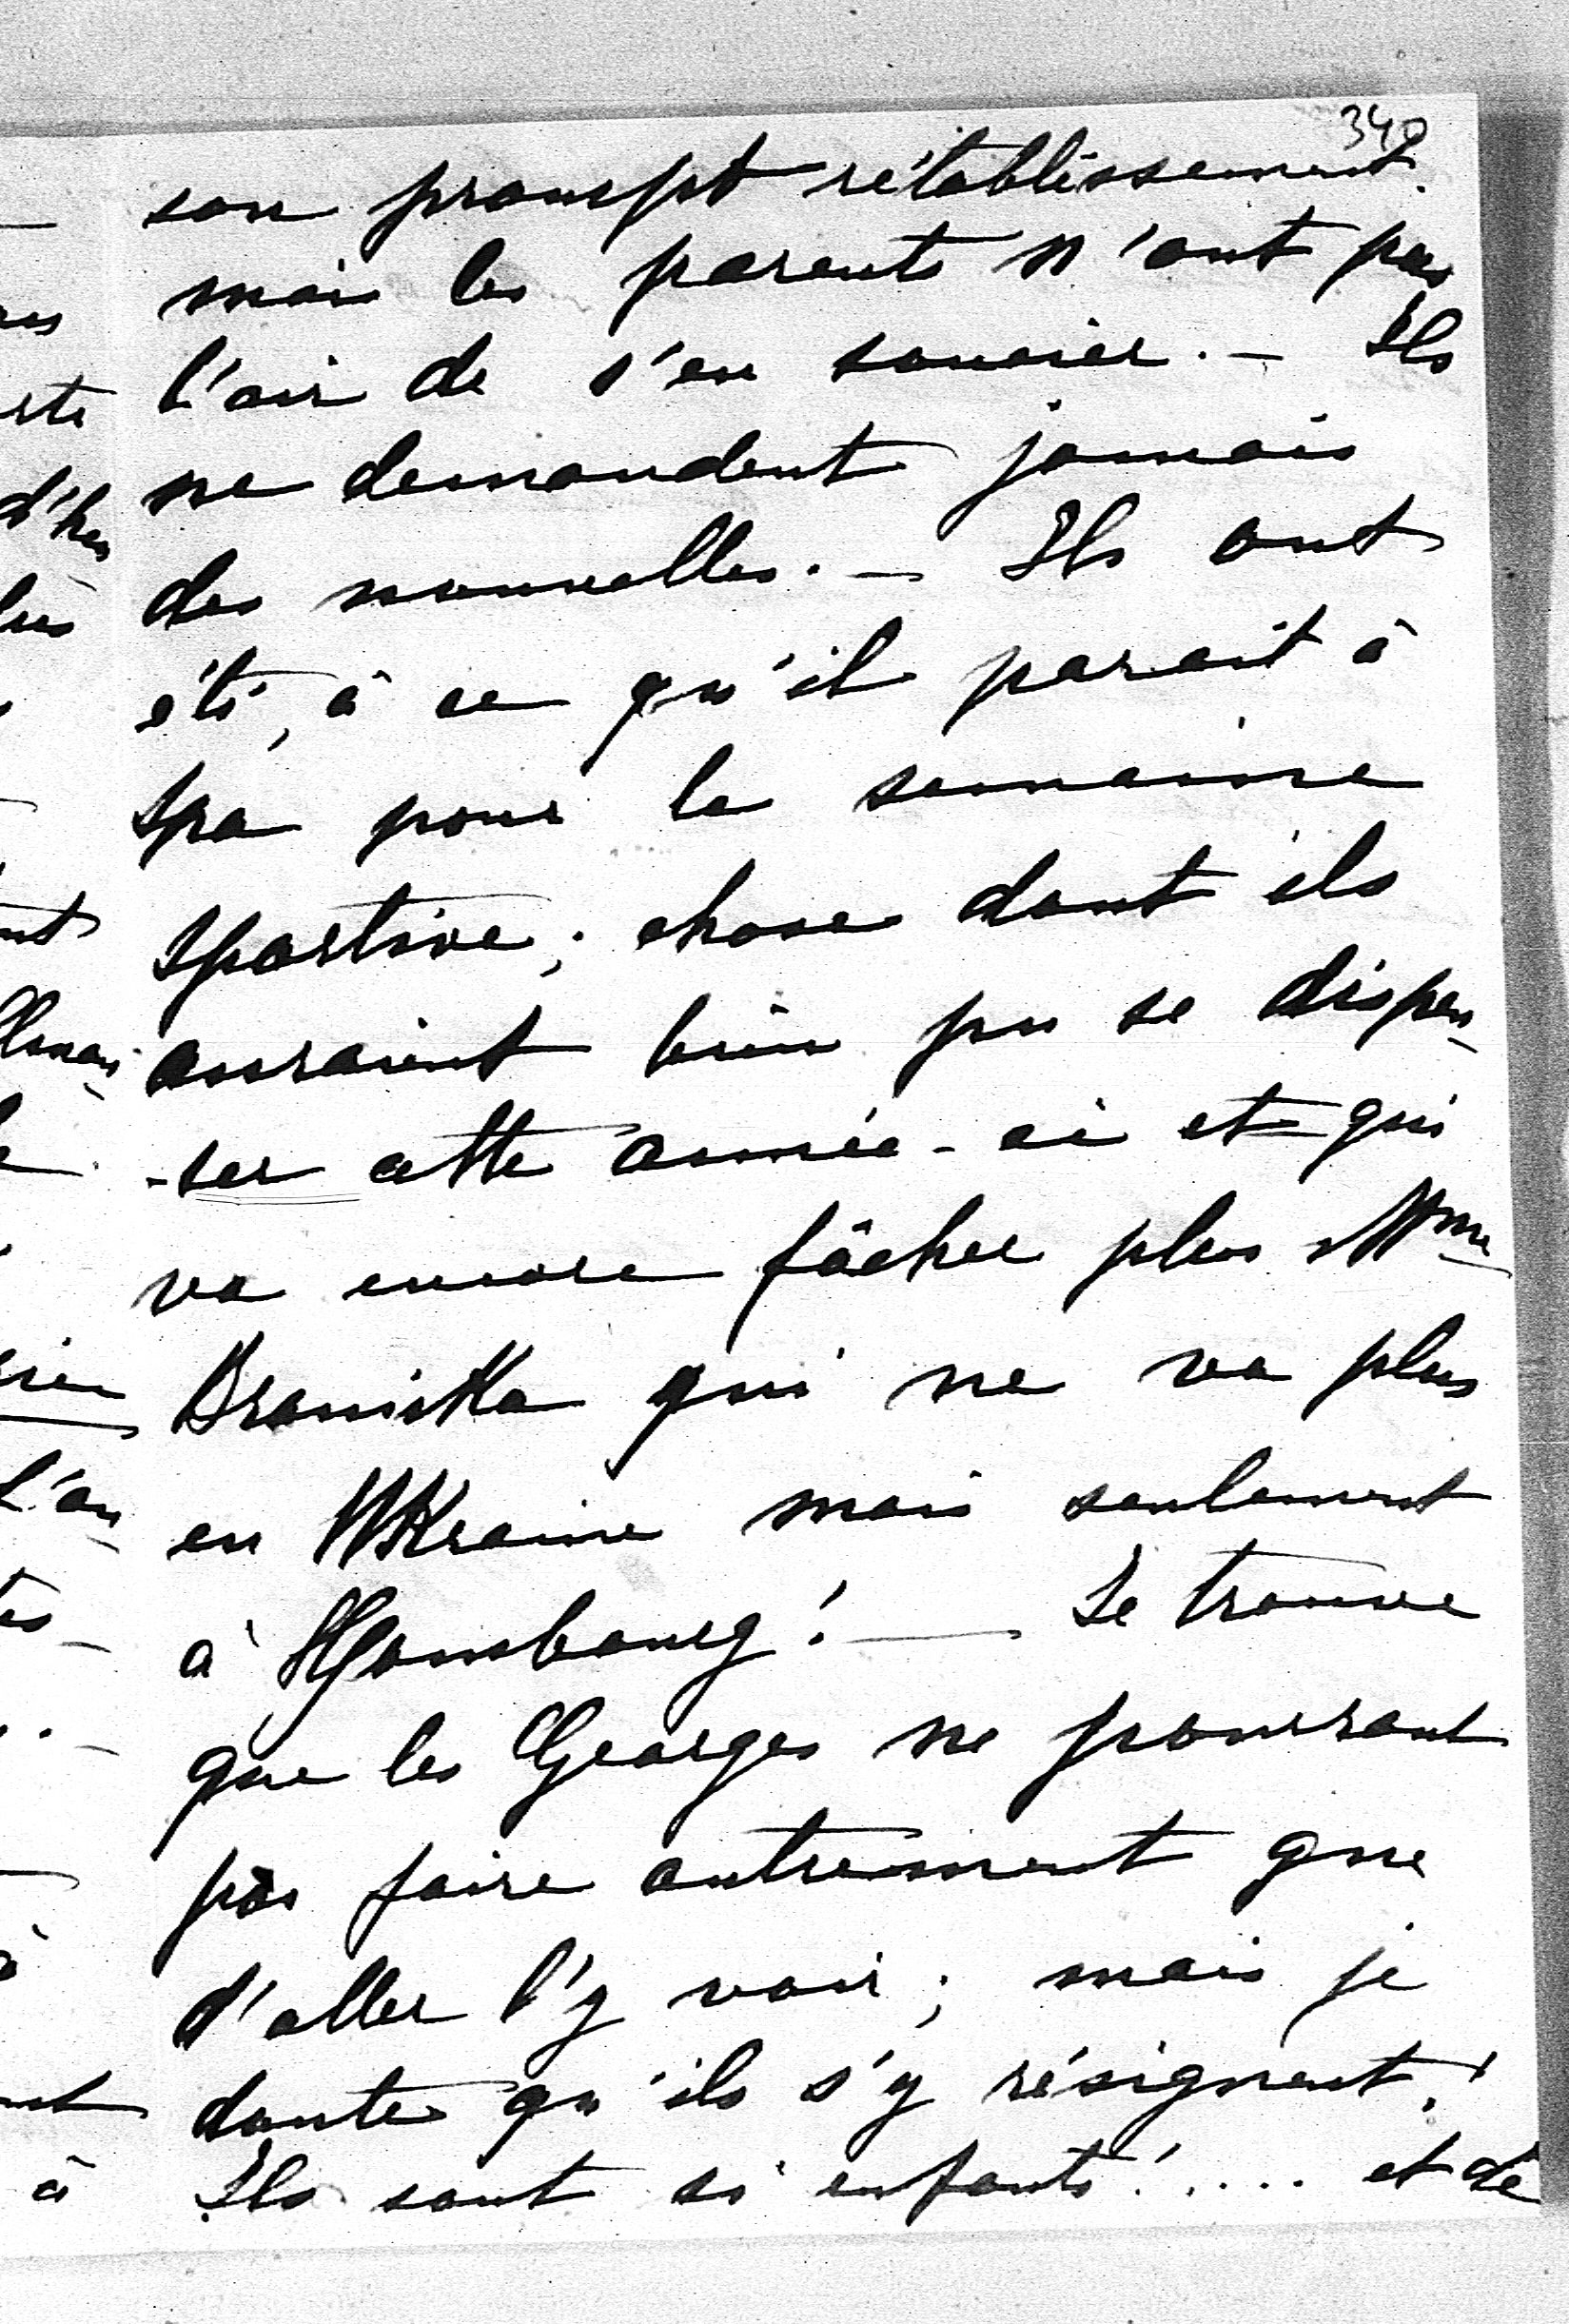 340
son prompt rétablissement.
mais les parents n'ont pas
l'air de s'en soucier. — Ils
ne demandent jamais
des nouvelles. — Ils ont
été, à ce qu'il parait à
Spa pour la semaine
sportive; chose dont ils
auraient bien pu se dispen-
-ser cette année-ci et qui
va encore fâcher plus Mme
Branicka qui ne va plus
en Ukraine mais seulement
à Hombourg! — Je trouve
que les Georges ne pourront
pas faire autrement que
d'aller l'y voir; mais je
doute qu'ils s'y résignent!
Ils sont si enfants!.... et de